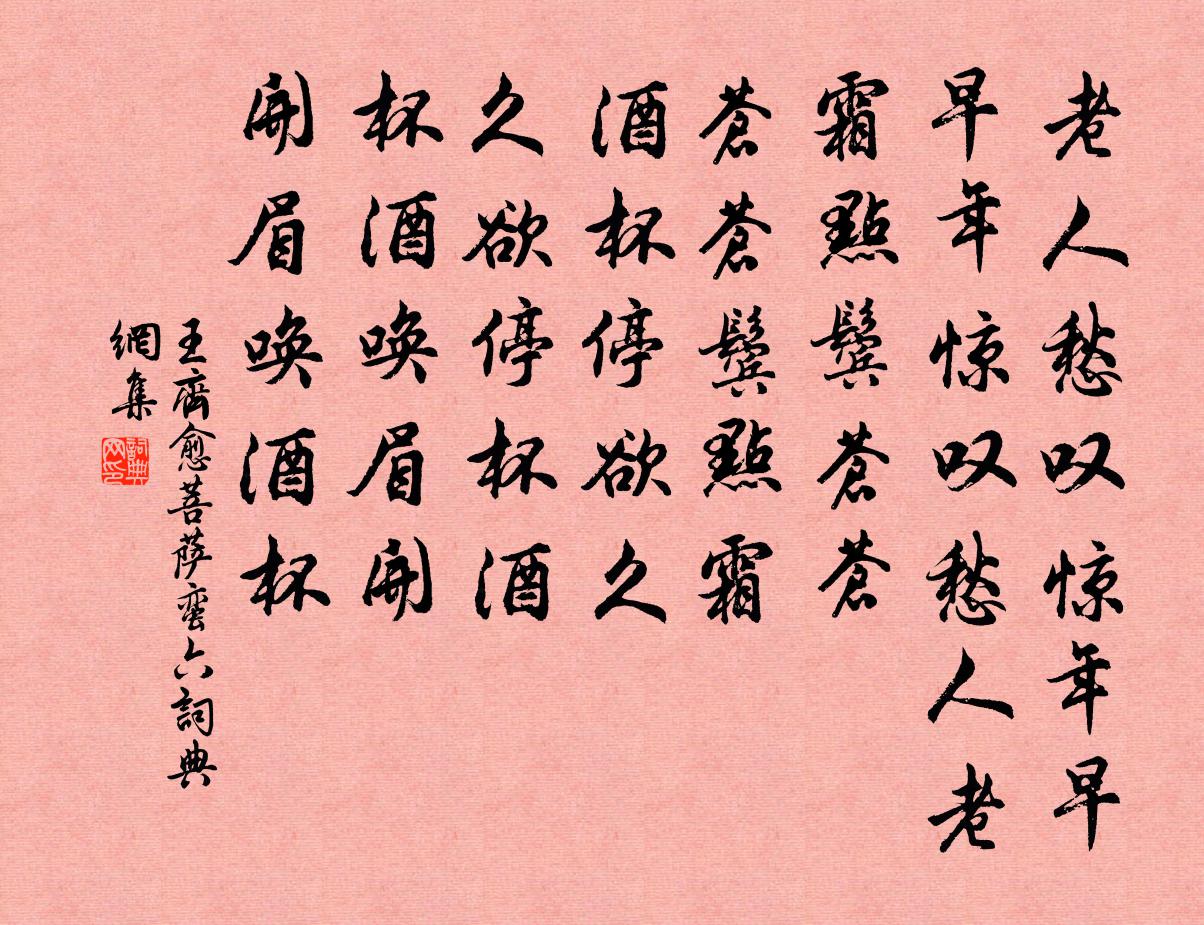 老人愁叹惊年早
早年惊叹愁人老
霜點鬓苍苍
苍苍鬓點霜
酒杯停欲久
久欲停杯酒
杯酒唤眉開
開眉唤酒杯
王齊愈菩萨蛮六詞典
網集
詞典網印